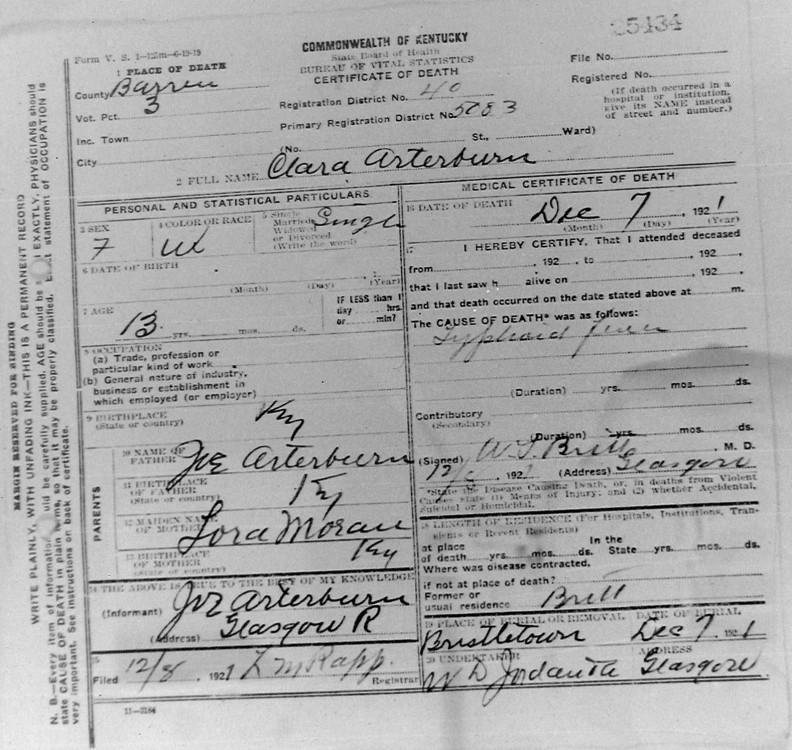 25434
Form V. S. 1-125m-6-19-19
COMMONWEALTH OF KENTUCKY
State Board of Health
BUREAU OF VITAL STATISTICS
CERTIFICATE OF DEATH
1 PLACE OF DEATH
County Barren
Vot. Pct. 3
Inc. Town
City
Registration District No. 40
Primary Registration District No. 5083
(No. St., Ward)
File No.
Registered No.
(If death occurred in a
hospital or institution,
give its NAME instead
of street and number.)
2 FULL NAME Clara Arterburn
PERSONAL AND STATISTICAL PARTICULARS
3 SEX
7
4 COLOR OR RACE
W
5 Single
Married
Widowed
or Divorced
(Write the word)
Single
6 DATE OF BIRTH
(Month) (Day) (Year)
7 AGE
13 yrs. mos. ds.
IF LESS than 1
day hrs.
or min?
8 OCCUPATION
(a) Trade, profession or
particular kind of work
(b) General nature of industry,
business or establishment in
which employed (or employer)
9 BIRTHPLACE
(State or country)
Ky
PARENTS
10 NAME OF
FATHER
Joe Arterburn
11 BIRTHPLACE
OF FATHER
(State or country)
Ky
12 MAIDEN NAME
OF MOTHER
Lora Moran
13 BIRTHPLACE
OF MOTHER
(State or country)
Ky
14 THE ABOVE IS TRUE TO THE BEST OF MY KNOWLEDGE
(Informant) Joe Arterburn
(Address) Glasgow R
15
Filed 12/8, 1921 Registrar
11-3184
MEDICAL CERTIFICATE OF DEATH
16 DATE OF DEATH
Dec 7, 1921
(Month) (Day) (Year)
17 I HEREBY CERTIFY, That I attended deceased
from , 192 , to , 192 ,
that I last saw h alive on , 192 ,
and that death occurred on the date stated above at m.
The CAUSE OF DEATH* was as follows:
Typhoid fever
(Duration) yrs. mos. ds.
Contributory
(Secondary)
(Duration) yrs. mos. ds.
(Signed) , M. D.
12/ , 1921 (Address) Glasgow
*State the Disease Causing Death, or, in deaths from Violent
Causes state (1) Means of Injury; and (2) whether Accidental,
Suicidal or Homicidal.
18 LENGTH OF RESIDENCE (For Hospitals, Institutions, Tran-
sients or Recent Residents)
At place In the
of death yrs. mos. ds. State yrs. mos. ds.
Where was disease contracted,
if not at place of death?
Former or
usual residence Britt
19 PLACE OF BURIAL OR REMOVAL DATE OF BURIAL
Bristletown Dec 7, 1921
20 UNDERTAKER ADDRESS
W D Glasgow
MARGIN RESERVED FOR BINDING
WRITE PLAINLY, WITH UNFADING INK—THIS IS A PERMANENT RECORD
N. B.—Every item of information should be carefully supplied. AGE should be EXACTLY. PHYSICIANS should
state CAUSE OF DEATH in plain terms, so that it may be properly classified. statement of OCCUPATION is
very important. See instructions on back of certificate.